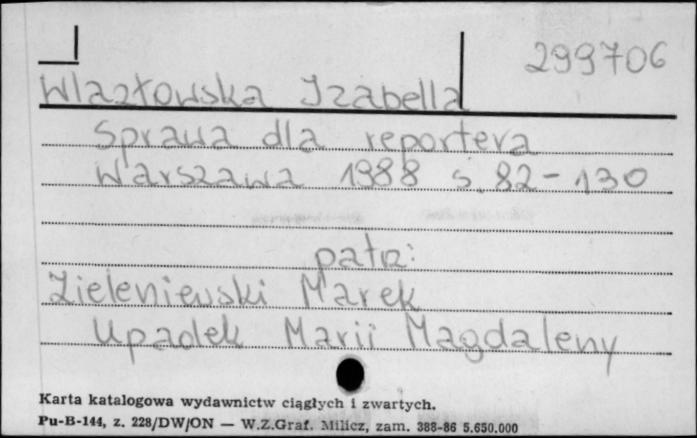 299706
Wlazłowska Izabella
Sprawa dla reportera
Warszawa 1988 s. 82-130
patrz:
Zieleniewski Marek
Upadek Marii Magdaleny
Karta katalogowa wydawnictw ciągłych i zwartych.
Pu-B-144, z. 228/DW/ON — W.Z.Graf. Milicz, zam. 388-86 5.650.000